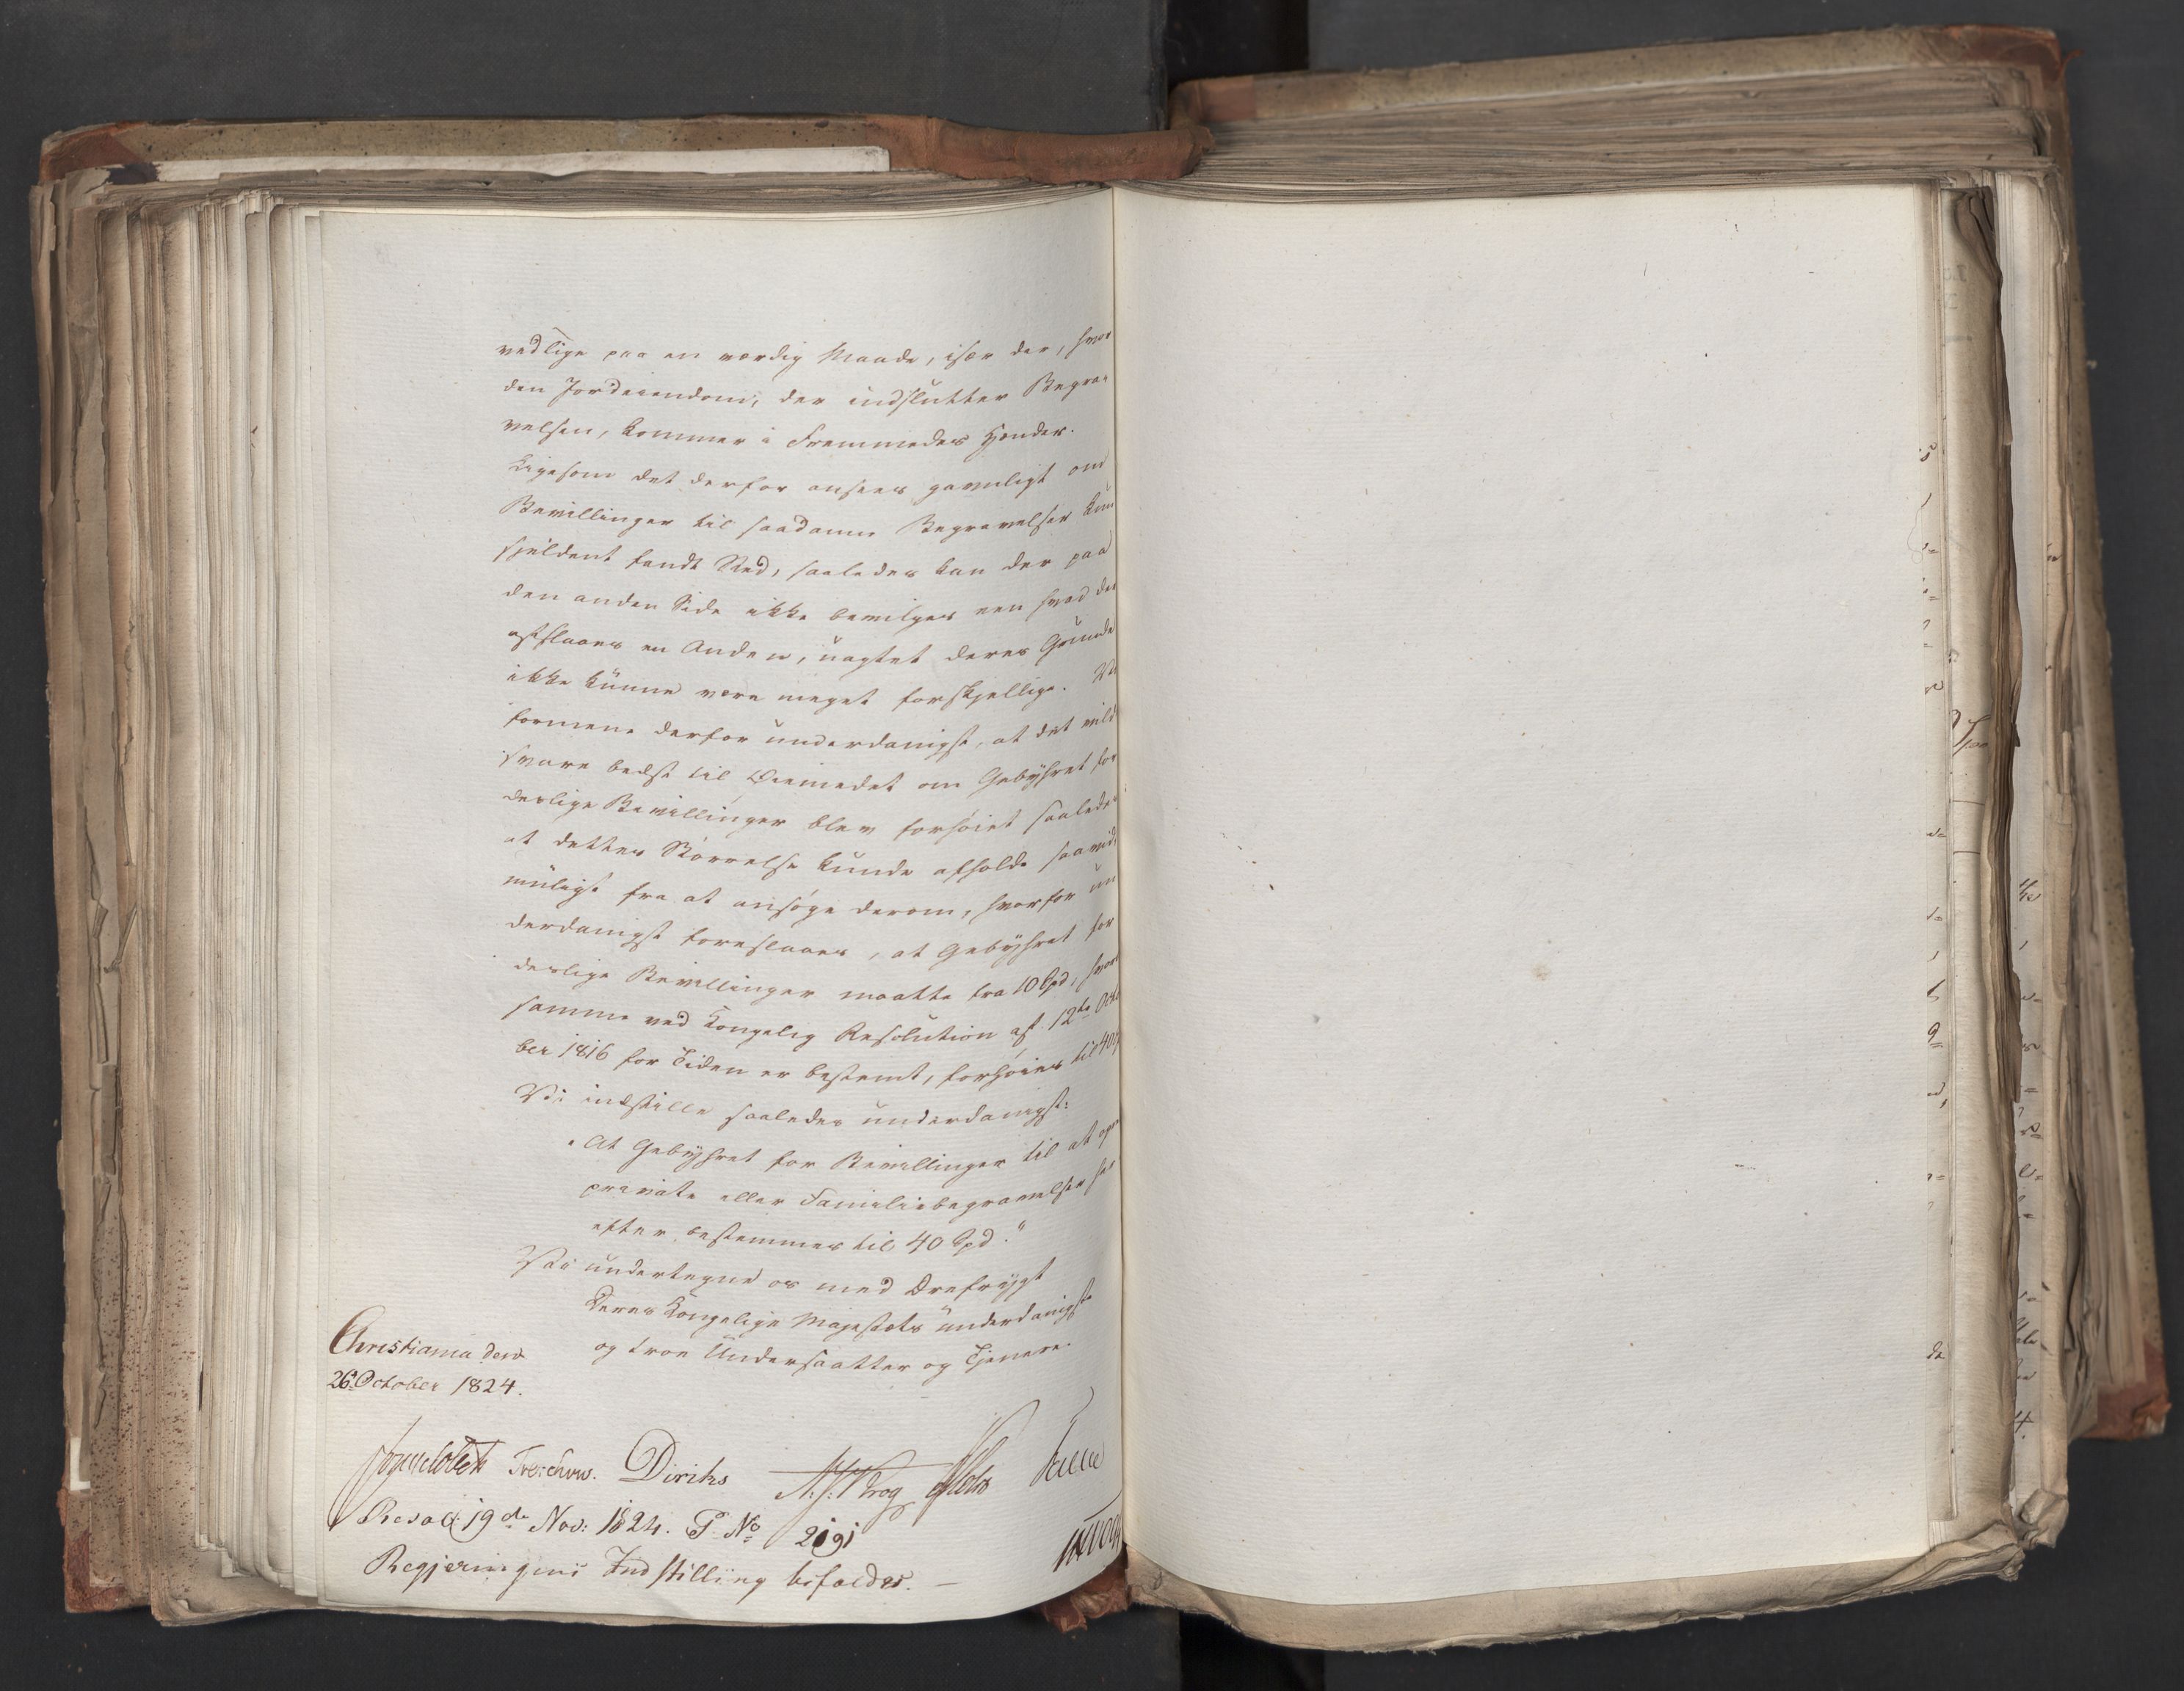 vedlige paa en værdig Maade, især der, hvor
den Jordeiendom, der indslutter Begra-
velsen, kommer i Fremmedes Hænder.
Ligesom det derfor ansees gavnligt om
Bevillinger til saadanne Begravelser kun
sjeldent fandt Sted, saaledes kan der paa
den anden Side ikke bevilges een hvad der
afslaaes en Anden, uagtet deres Grunde
ikke kunne være meget forskjellige. Vi
formene derfor underdanigst, at det vilde
svare bedst til Øiemedet om Gebyhret for
deslige Bevillinger blev forhøiet saaledes
at dettes Størrelse kunde afholde saavidt
muligt fra at ansøge derom, hvorfor un
derdanigst foreslaaes, at Gebyhret for
deslige Bevillinger maatte fra 10 Spd, hvor
samme ved Kongelig Resolution af 12te Octo
ber 1816 for Tiden er bestemt, forhøies til 40
Vi indstille saaledes underdanigst:
"At Gebyhret for Bevillinger til at
private eller Familiebegravelser her
efter bestemmes til 40 Spd."
Vi undertegne os med Ærefrygt
Deres Kongelige Majestæts underdanigste
og troe Undersaatter og Tjenere.
Christiania den
26 October 1824.
Treschow. Diriks Krog
Resol: 19de Nov: 1824. P. No 2191
Regjeringens Indstilling bifaldes. —